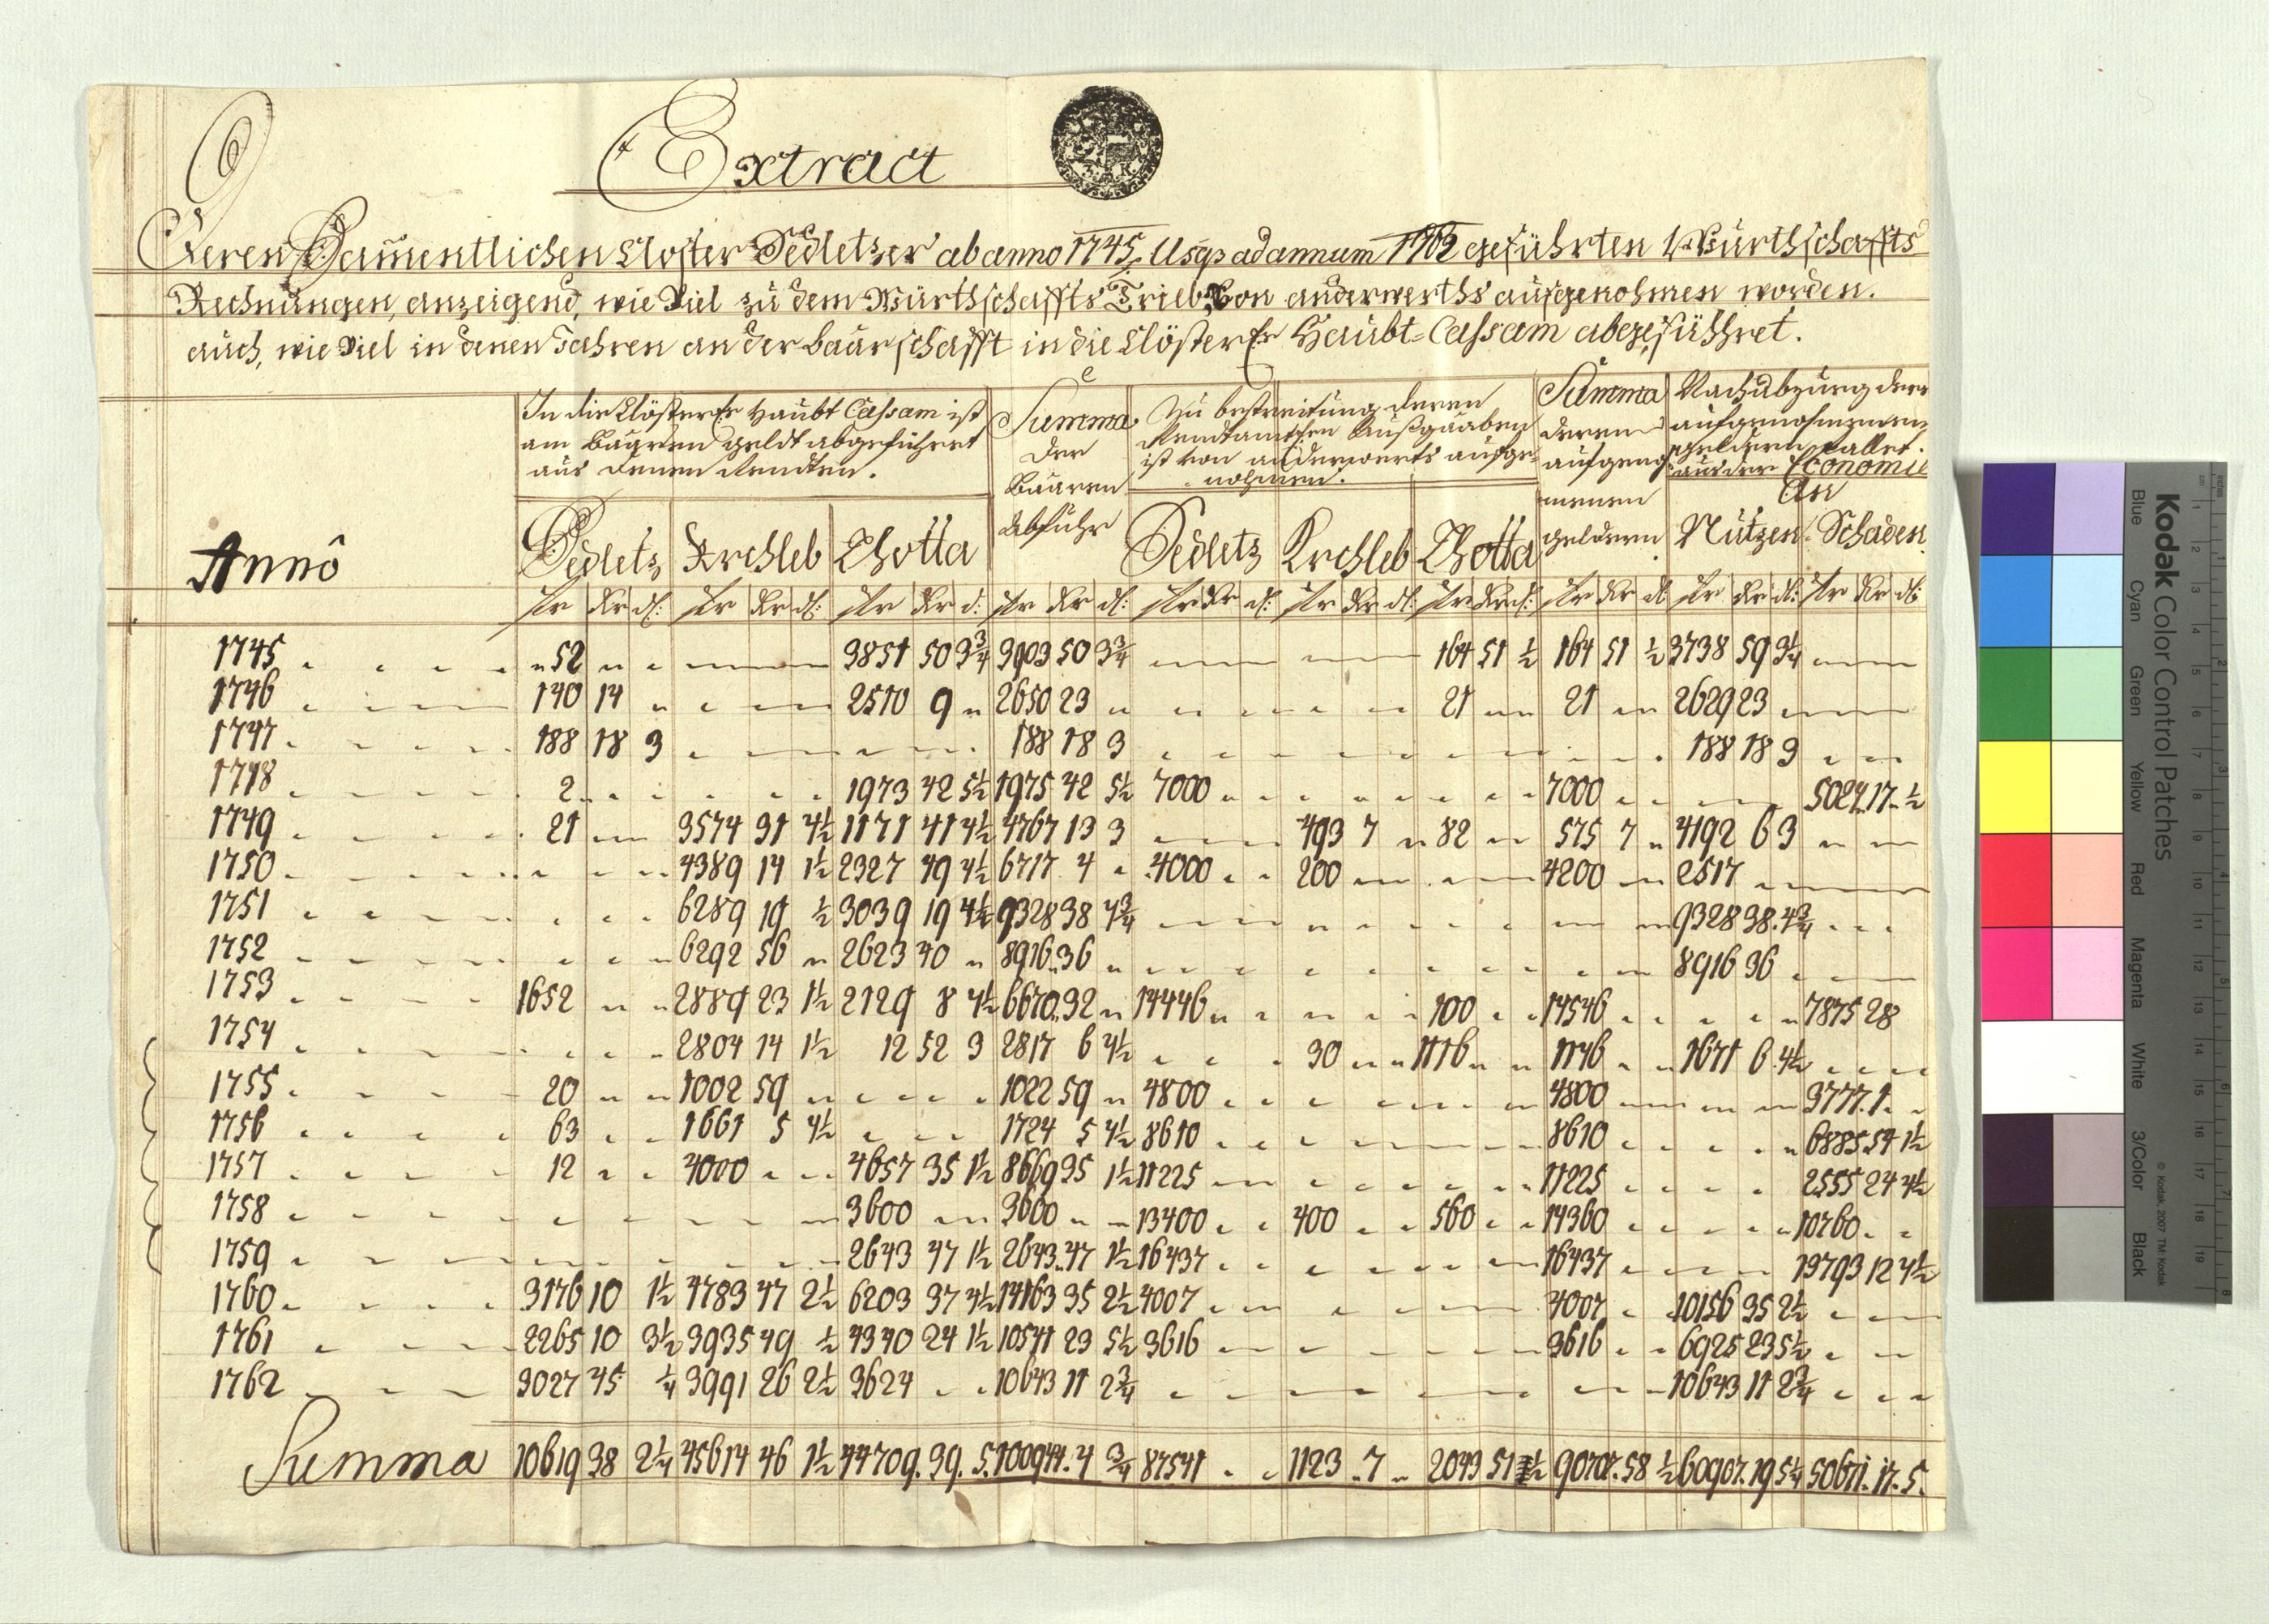 Extract
Deren Sammentlichen Closter Sedletzer ab anno 1745 usq ad annum 1762 geführten Würthschaffts
Rechnungen, anzeigend, wie Viel zu dem Würthschaffts Trieb Von anderwerths aufgenohmen worden.
auch, wie Viel in denen Jahren an der baarschafft in die Clösterl: Haubt=Cassam abgeführet.
In die Clösterl: Haubt Cassam ist
am baaren geldt abgeführet
aus denen Rendten.
Summa
der
baaren
abfuhr
Zu bestreitung deren
Rendtamtlichen Außgaaben
ist von anderwerts aufge-
nohmen.
Summa
deren
aufgenoh
menen
geldern
Nach abzug deren
aufgenohmenen
geldern fallet
aus der Economie
An
Anno Sedletz Krchleb Lhotta Sedletz Krchleb Lhotta Nutzen Schaden
fr kr d: fr kr d: fr kr d: fr kr d: fr kr d: fr kr d: fr kr d: fr kr d: fr kr d: fr kr d:
1745 52 3851 50 3¾ 3903 50 3¾ 164 51 ½ 164 51 ½ 3738 59 3¼
1746 140 14 2510 9 2650 23 21 21 2629 23
1747 188 18 3 188 18 3 188 18 3
1748 2 1973 42 5½ 1975 42 5½ 7000 7000 5024 17 ½
1749 21 3574 31 4½ 1171 41 4½ 4767 13 3 493 7 82 575 7 4192 6 3
1750 4389 14 1½ 2327 49 4½ 6717 4 4000 200 4200 2517
1751 6289 19 ½ 3039 19 4½ 9328 38 4¾ 9328 38 4¾
1752 6292 56 2623 40 8916 36 8916 36
1753 1652 2889 23 1½ 2129 8 4½ 6670 32 14446 100 14546 7875 28
1754 2804 14 1½ 12 52 3 2817 6 4½ 30 1116 1146 1671 6 4½
1755 20 1002 59 1022 59 4800 4800 3777 1
1756 63 1661 5 4½ 1724 5 4½ 8610 8610 6885 54 1½
1757 12 4000 4657 35 1½ 8669 35 1½ 11225 11225 2555 24 4½
1758 3600 3600 13400 400 560 14360 10760
1759 2643 47 1½ 2643 47 1½ 16437 16437 13793 12 4½
1760 3176 10 1½ 4783 47 2½ 6203 37 4½ 14163 35 2½ 4007 4007 10156 35 2½
1761 2265 10 3½ 3935 49 ½ 4340 24 1½ 10541 23 5½ 3616 3616 6925 23 5½
1762 3027 45 ¼ 3991 26 2½ 3624 10643 11 2¾ 10643 11 2¾
Summa 10619 38 2¼ 45614 46 1½ 44709 39 5 100944 4 ¾ 87541 1123 7 2043 51 ½ 90707 58 ½ 60907 19 5¼ 50671 17 5
Kodak Color Control Patches
Blue Cyan Green Yellow Red Magenta White 3/Color Black
© Kodak, 2007 TM: Kodak